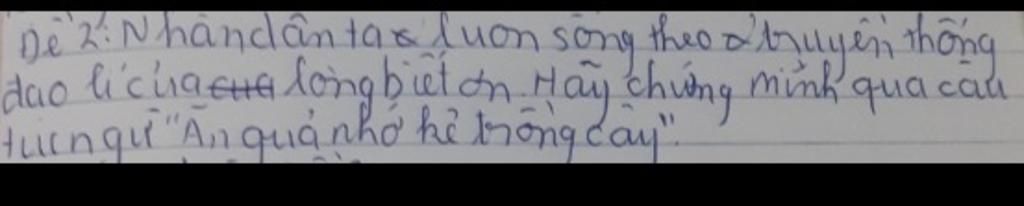 Đề 2: Nhân dân ta luon sông theo truyền thống
dao lí của lòng biết ơn. Hãy chứng minh qua câu
tục ngữ "Ăn quả nhớ kẻ trồng cây".